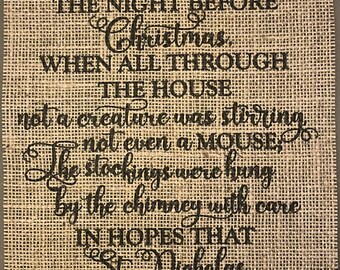 THE NIGHT BEFORE
Christmas,
WHEN ALL THROUGH
THE HOUSE
not a creature was stirring
not even a MOUSE;
The stockings were hung
by the chimney with care
IN HOPES THAT
St. Nicholas